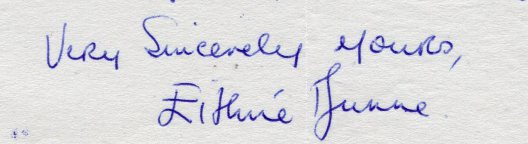 Very Sincerely yours,
Eithné Dunne